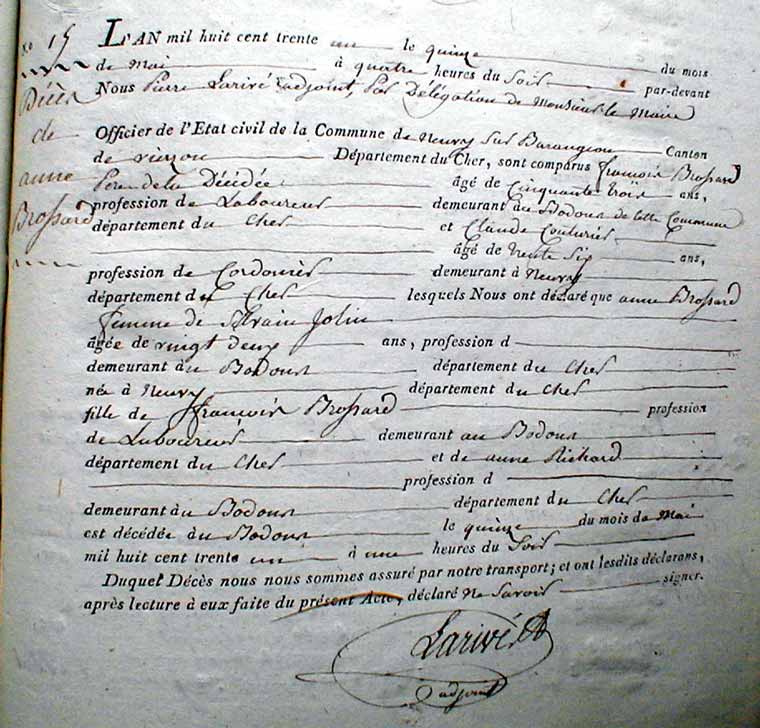 no 15
Décès
de
anne
Brossard
L'AN mil huit cent trente un le quinze du mois
de mai à quatre heures du Soir par-devant
Nous Pierre Larivé adjoint, Par Délégation de Monsieur le Maire
Officier de l'Etat civil de la Commune de Neuvy Sur Barangeon Canton
de vierzon Département du Cher, sont comparus françois Brossard
Pere de la Décédée âgé de Cinquante trois ans,
profession de Laboureur demeurant au Bodoux de cette Commune
département du Cher et Claude Couturier
âgé de trente Six ans,
profession de Cordonier demeurant à Neuvy
département du Cher lesquels Nous ont déclaré que anne Brossard
femme de Silvain Jolin
âgée de vingt deux ans, profession d
demeurant au Bodoux département du Cher
née à Neuvy département du Cher
fille de françois Brossard profession
de Laboureur demeurant au Bodoux
département du Cher et de anne Richard
profession d
demeurant au Bodoux département du Cher
est décédée au Bodoux le quinze du mois de Mai
mil huit cent trente un à une heures du Soir
Duquel Décès nous nous sommes assuré par notre transport; et ont lesdits déclarans,
après lecture à eux faite du présent Acte, déclaré Ne Savoir signer.
Larivé
adjoint